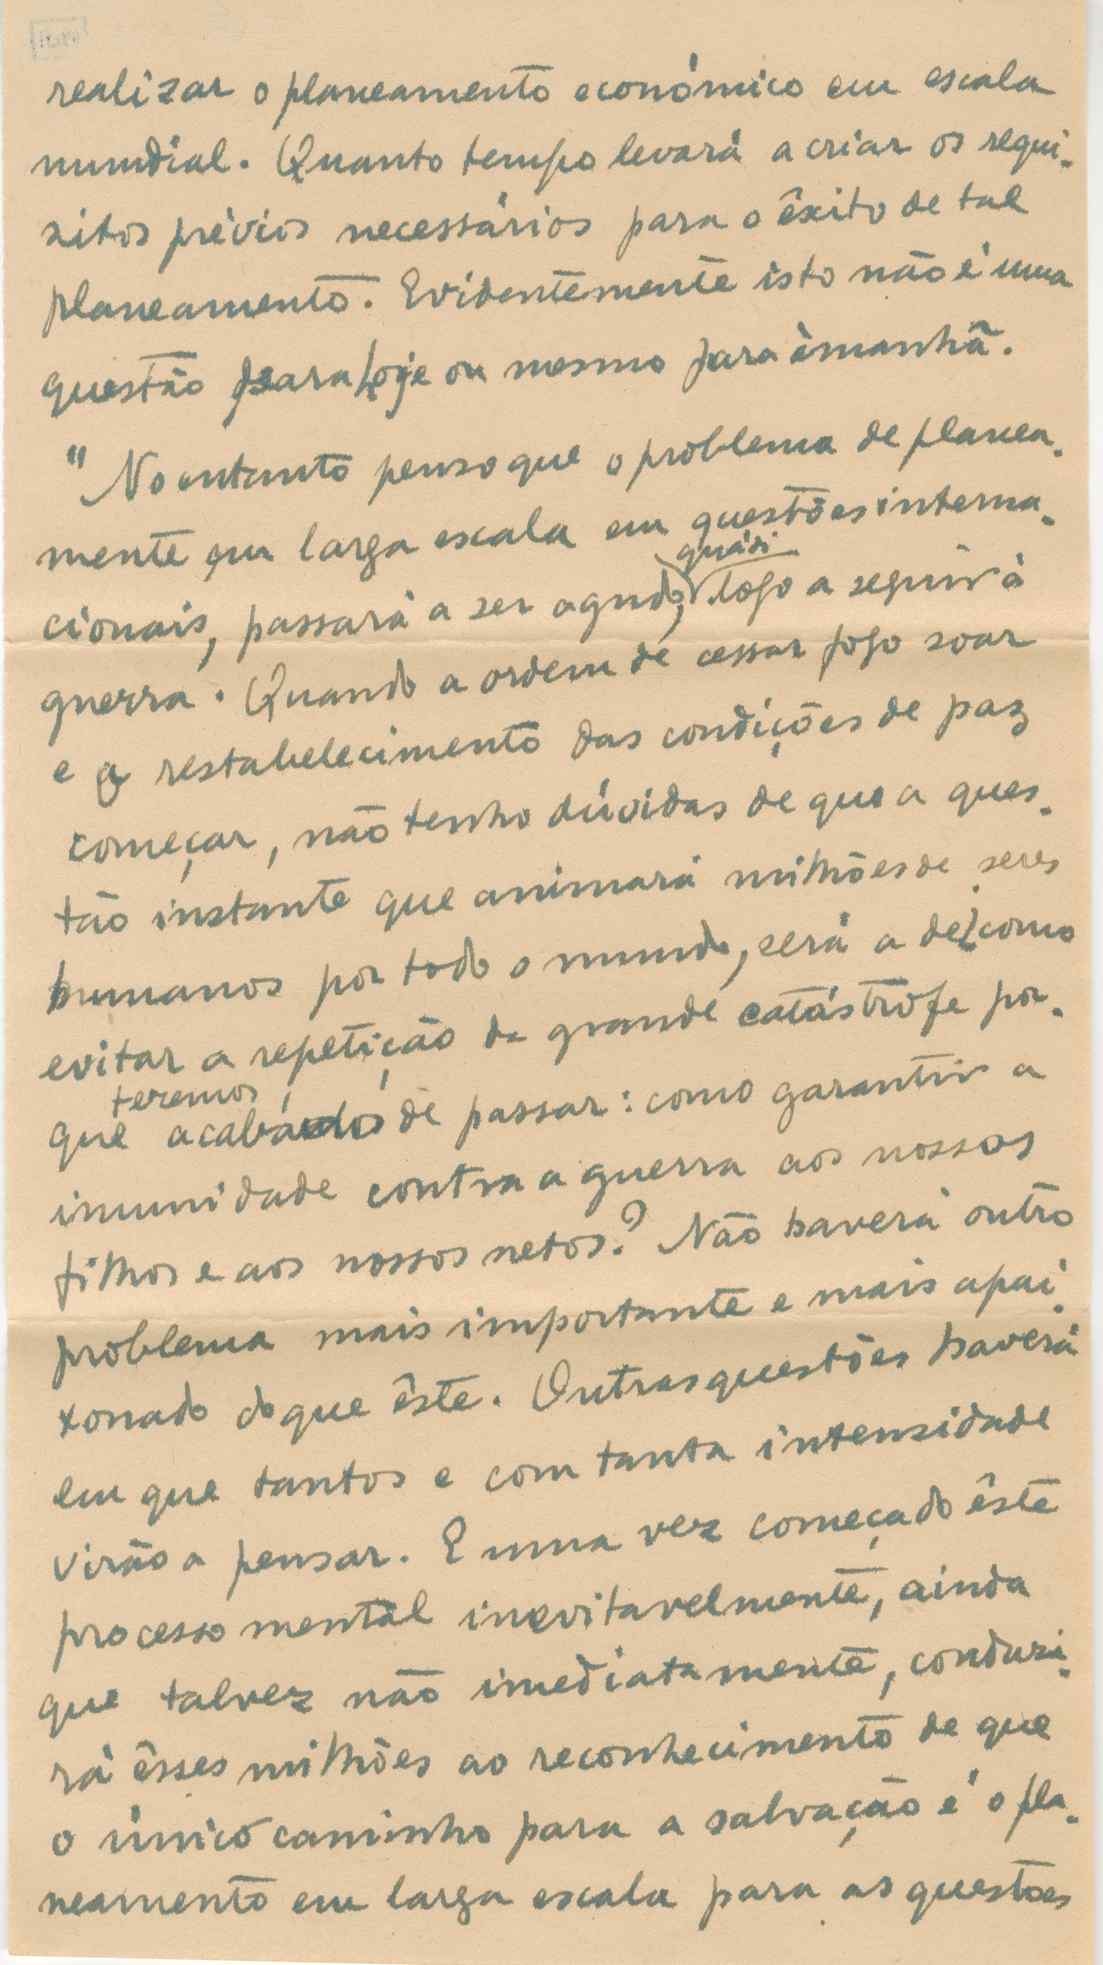 realizar o planeamento económico em escala
mundial. Quanto tempo levará a criar os requi-
sitos prévios necessários para o êxito de tal
planeamento. Evidentemente isto não é uma
questão para hoje ou mesmo para àmanhã.
"No entanto penso que o problema de planea-
mente em larga escala em questões interna-
cionais, passará a ser agudo, quási logo a seguir à
guerra. Quando a ordem de cessar fogo soar
e o restabelecimento das condições de paz
começar, não tenho dúvidas de que a ques-
tão instante que animará milhões de seres
humanos por todo o mundo, será a de: como
evitar a repetição da grande catástrofe por-
que teremos acabado de passar: como garantir a
imunidade contra a guerra aos nossos
filhos e aos nossos netos? Não haverá outro
problema mais importante e mais apai-
xonado do que êste. Outras questões haverá
em que tantos e com tanta intensidade
virão a pensar. E uma vez começado êste
processo mental inevitavelmente, ainda
que talvez não imediatamente, conduzi-
rá êsses milhões ao reconhecimento de que
o único caminho para a salvação é o pla-
neamento em larga escala para as questões